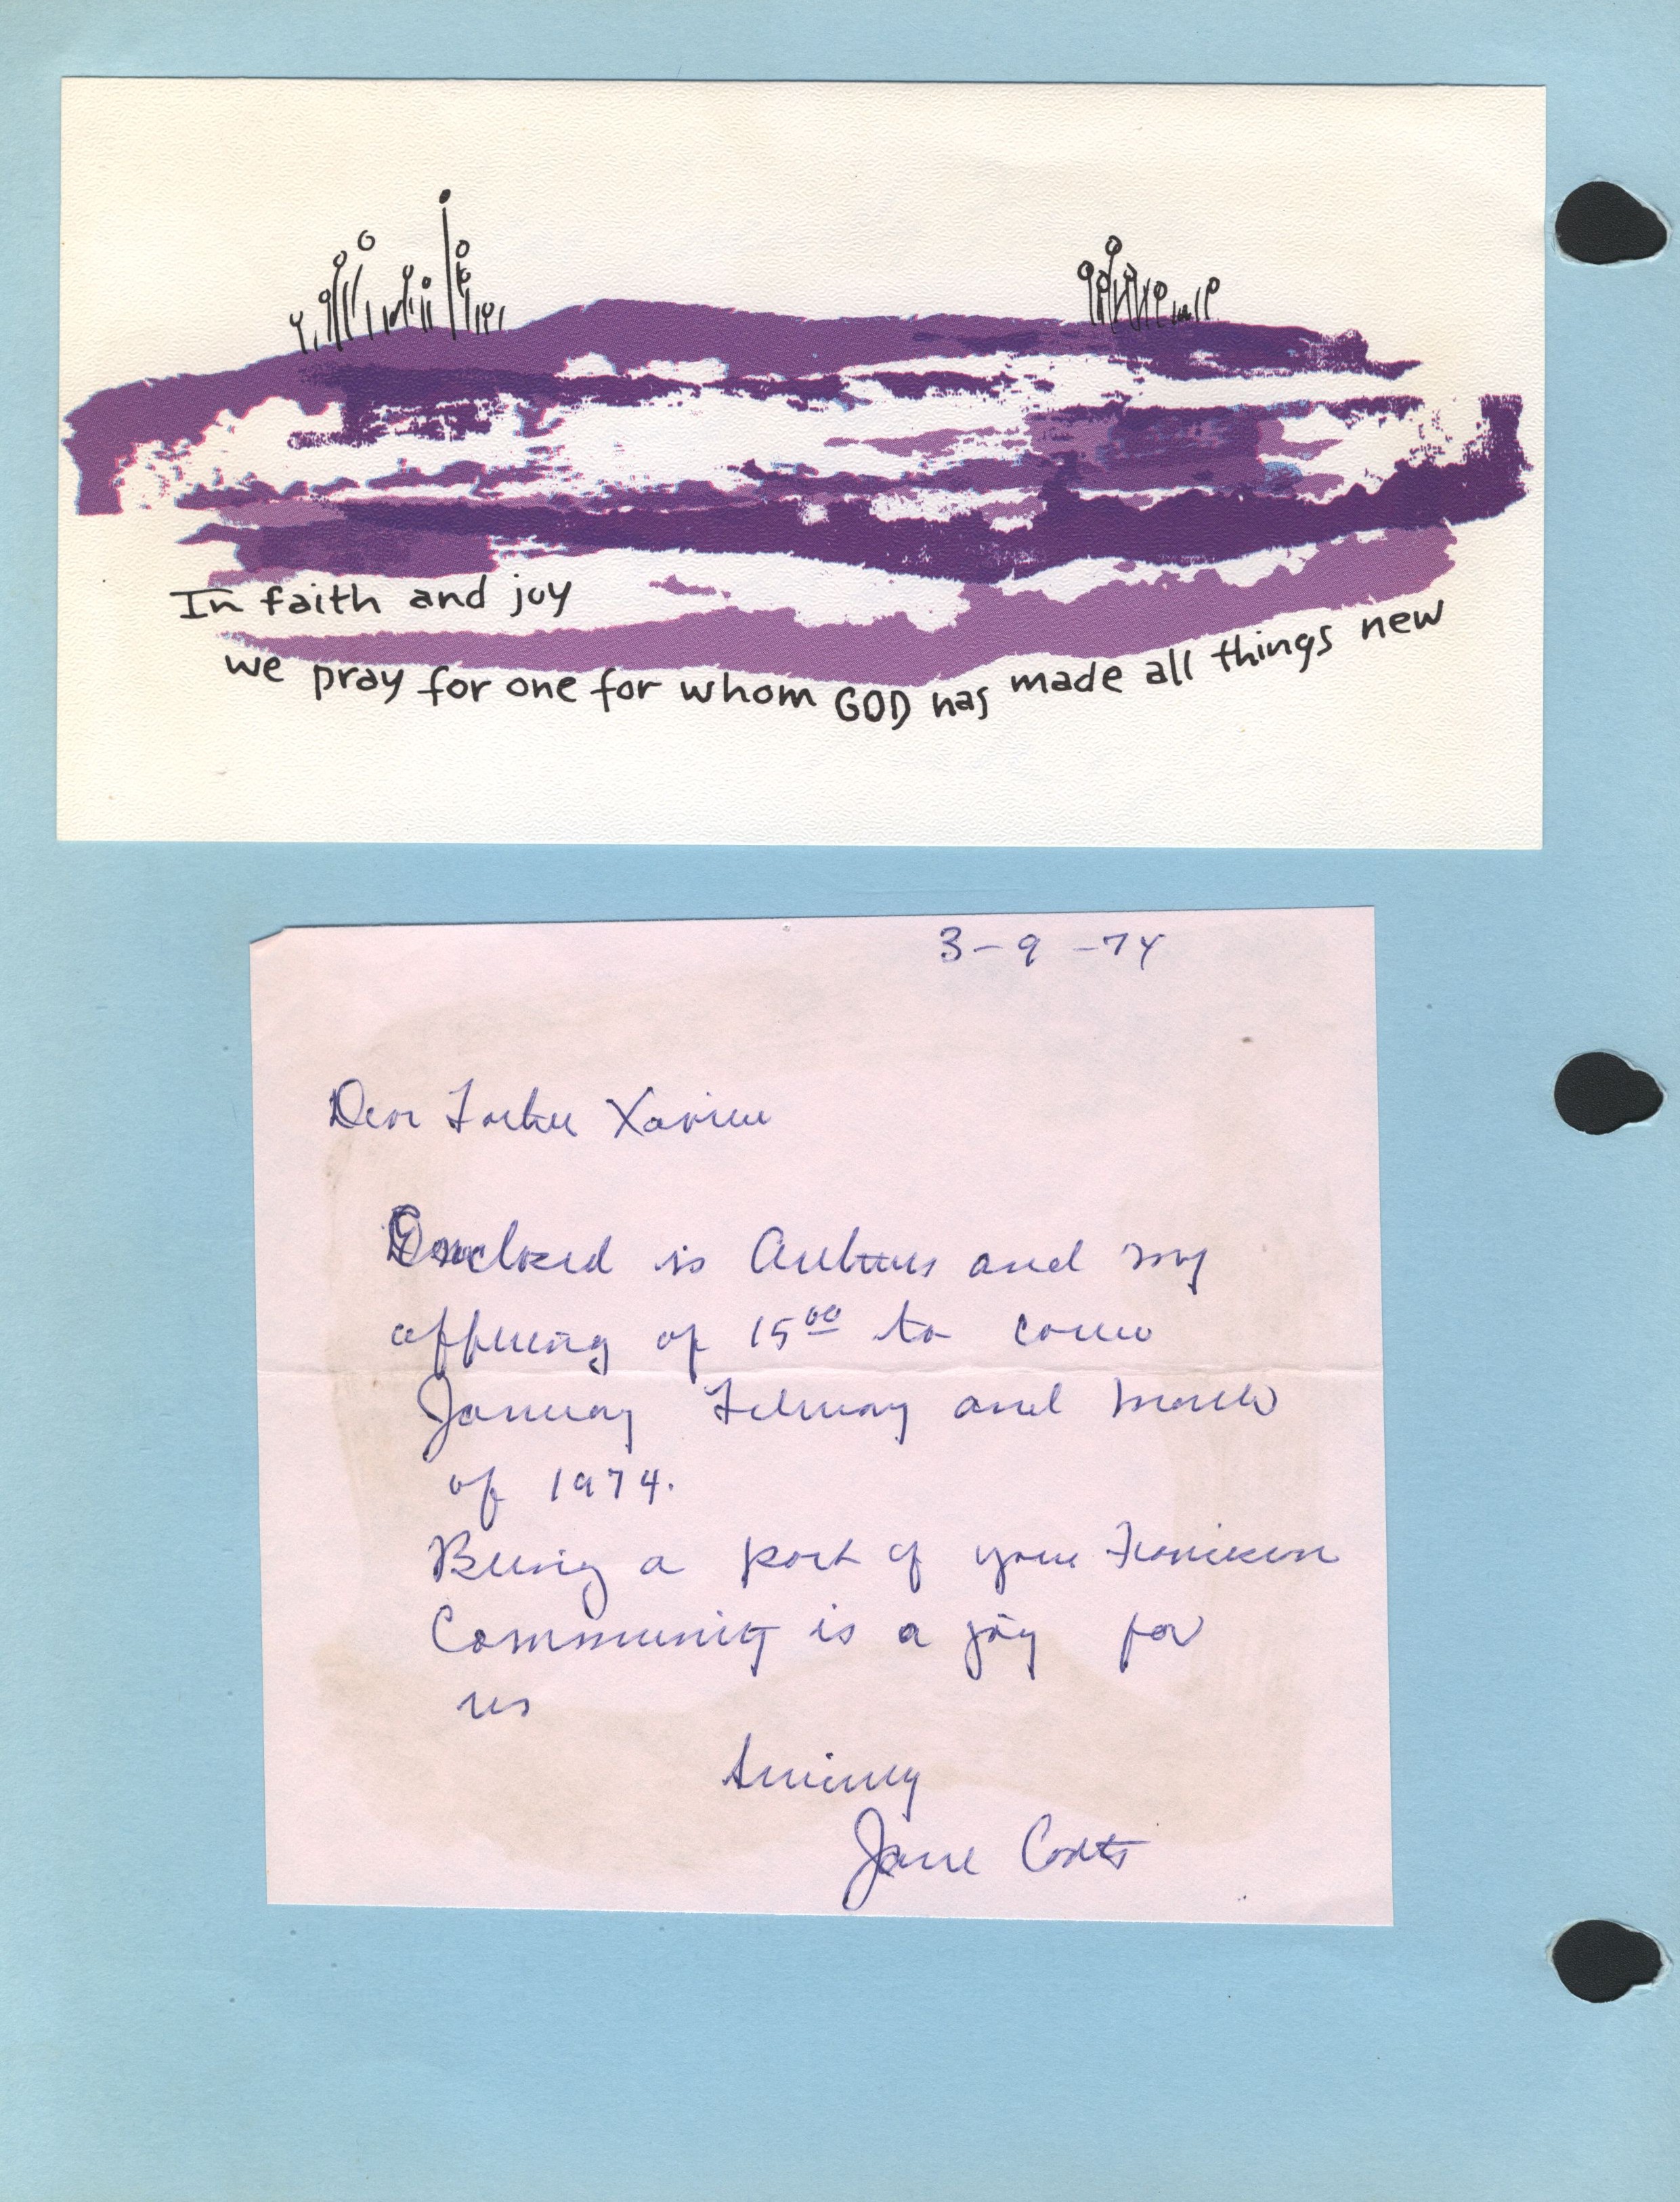 In faith and joy
we pray for one for whom GOD has made all things new
3-9-74
Dear Father Xavier
Enclosed is Arthurs and my
offering of 15⁰⁰ to cover
January February and March
of 1974.
Being a part of your Franciscan
Community is a joy for
us
Sincerely
Jane Coats